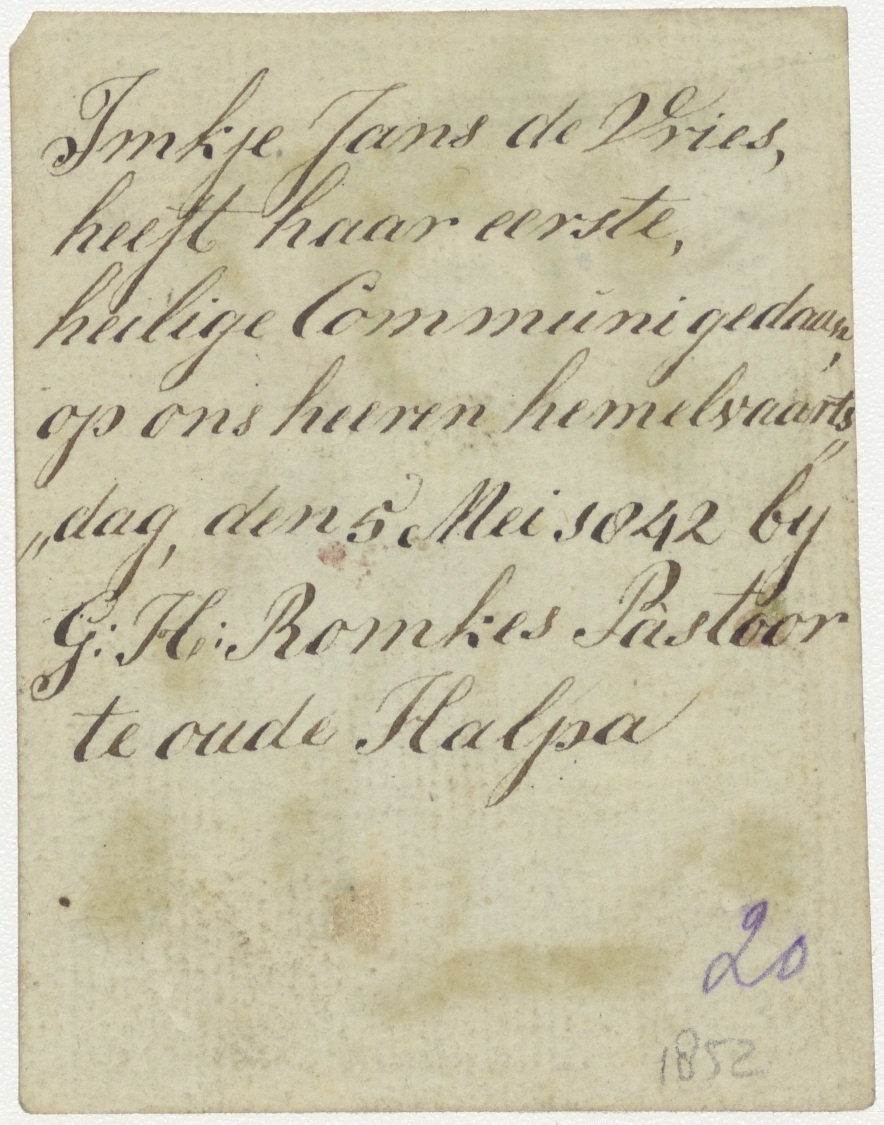 Imkje Jans de Vries,
heeft haar eerste,
heilige Communi gedaan,
op ons heeren hemelvaarts„
„dag, den 5 Mei 1842 by
G: H: Romkes Pastoor
te oude Halpa
20
1852